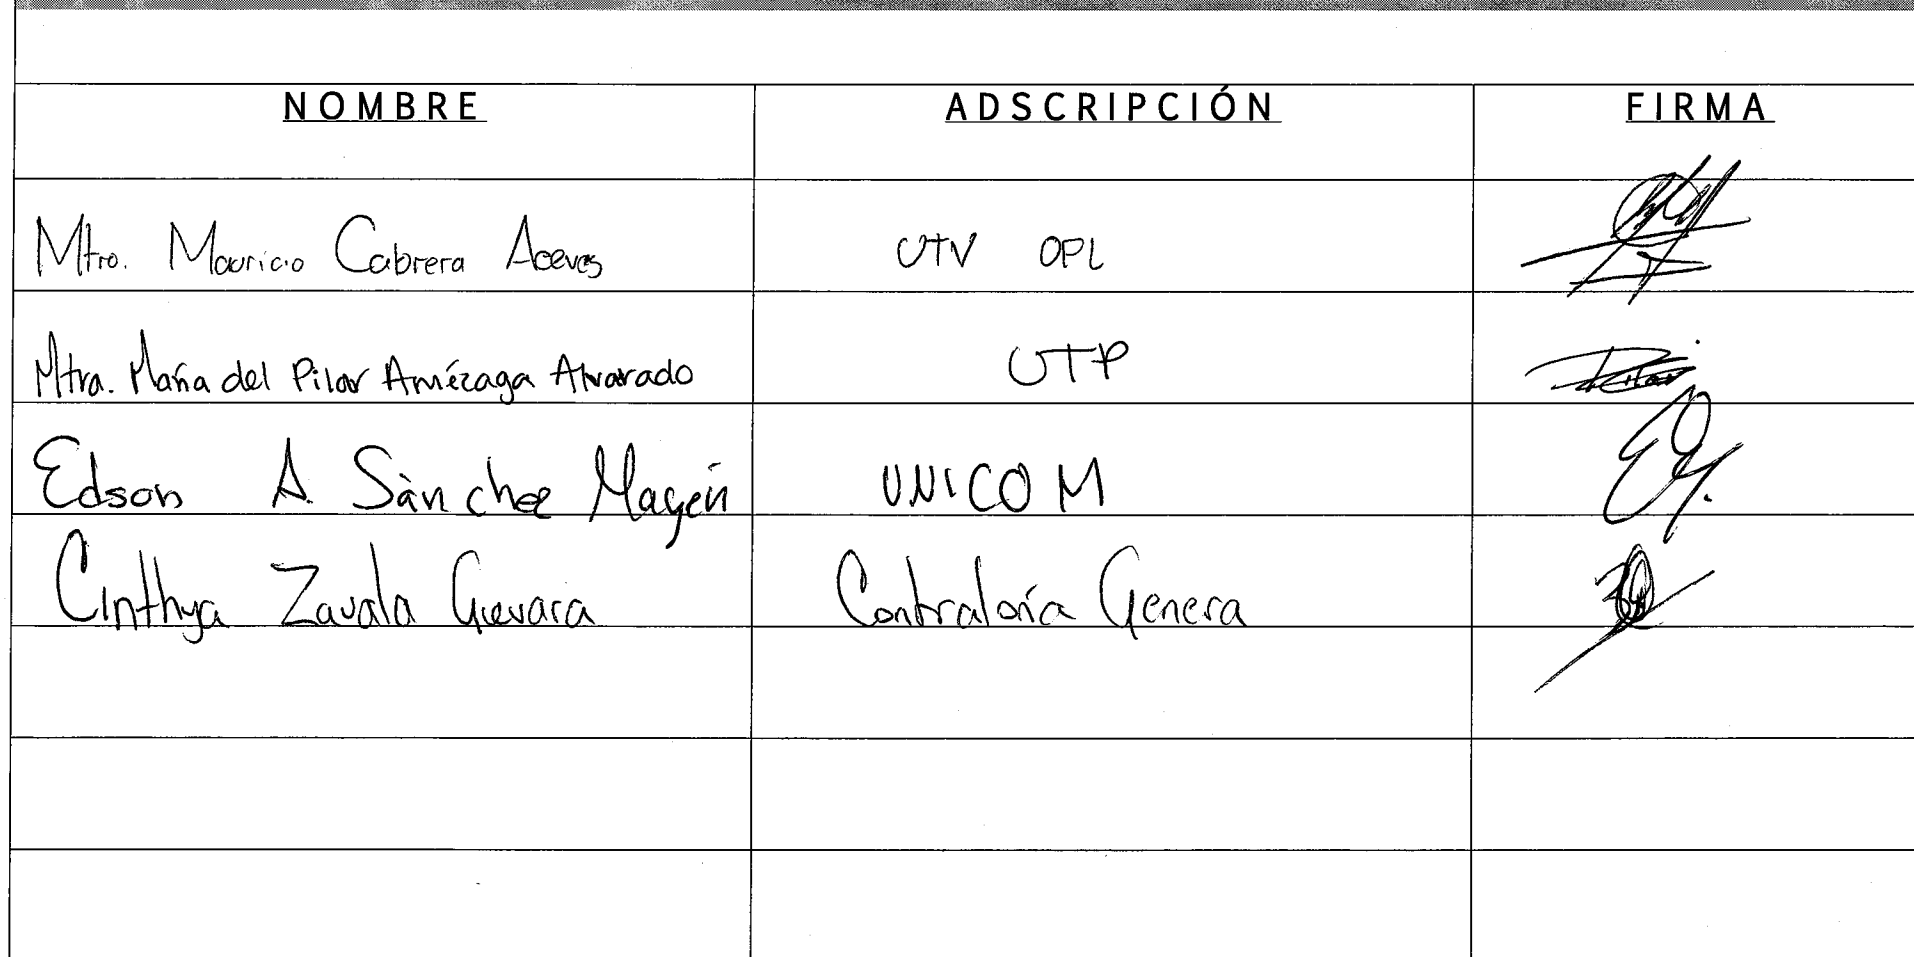 NOMBRE ADSCRIPCIÓN FIRMA
Mtro. Mauricio Cabrera Aceves UTV OPL
Mtra. María del Pilar Amézaga Alvarado UTP
Edson A. Sánchez Magín UNICOM
Cinthya Zavala Guevara Contraloría Genera